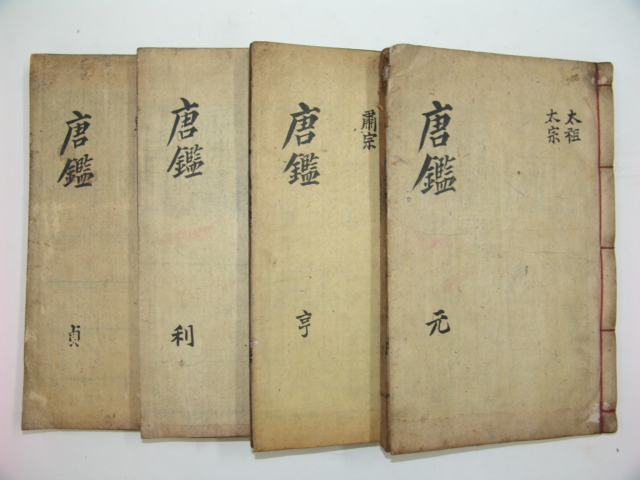 太祖
太宗
唐鑑
元
肅宗
唐鑑
亨
唐鑑
利
唐鑑
貞